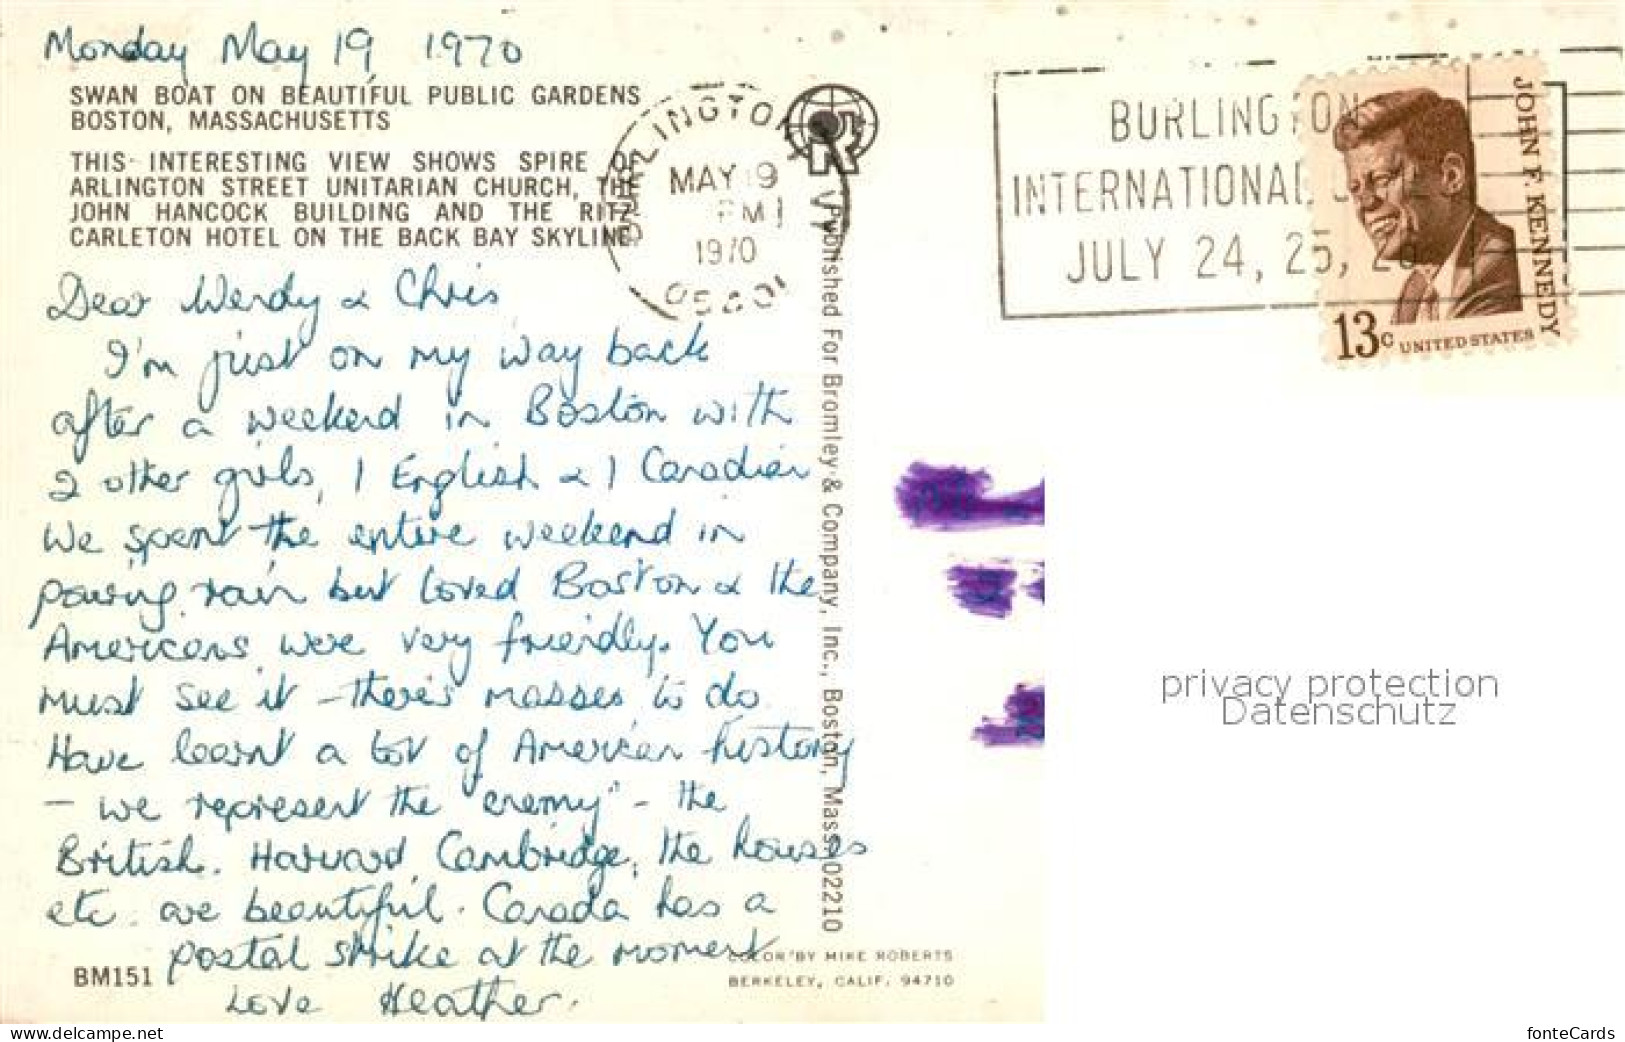 Monday May 19 1970
SWAN BOAT ON BEAUTIFUL PUBLIC GARDENS
BOSTON, MASSACHUSETTS
THIS INTERESTING VIEW SHOWS SPIRE OF
ARLINGTON STREET UNITARIAN CHURCH, THE
JOHN HANCOCK BUILDING AND THE RITZ-
CARLETON HOTEL ON THE BACK BAY SKYLINE.
Dear Wendy & Chris
I'm just on my way back
after a weekend in Boston with
2 other girls, 1 English & 1 Canadian
We spent the entire weekend in
pouring rain but loved Boston & the
Americans were very friendly. You
must see it - there's masses to do.
Have learnt a lot of American history
- we represent the "enemy" - the
British. Harvard, Cambridge, the houses
etc. are beautiful. Canada has a
postal strike at the moment
Love Heather.
BM151
COLOR BY MIKE ROBERTS
BERKELEY, CALIF. 94710
Published For Bromley & Company, Inc., Boston, Mass. 02210
BURLINGTON, VT
MAY 19
PM
1970
05401
BURLINGTON
INTERNATIONAL
JULY 24, 25, 26
JOHN F. KENNEDY
13c UNITED STATES
privacy protection
Datenschutz
www.delcampe.net
fonteCards